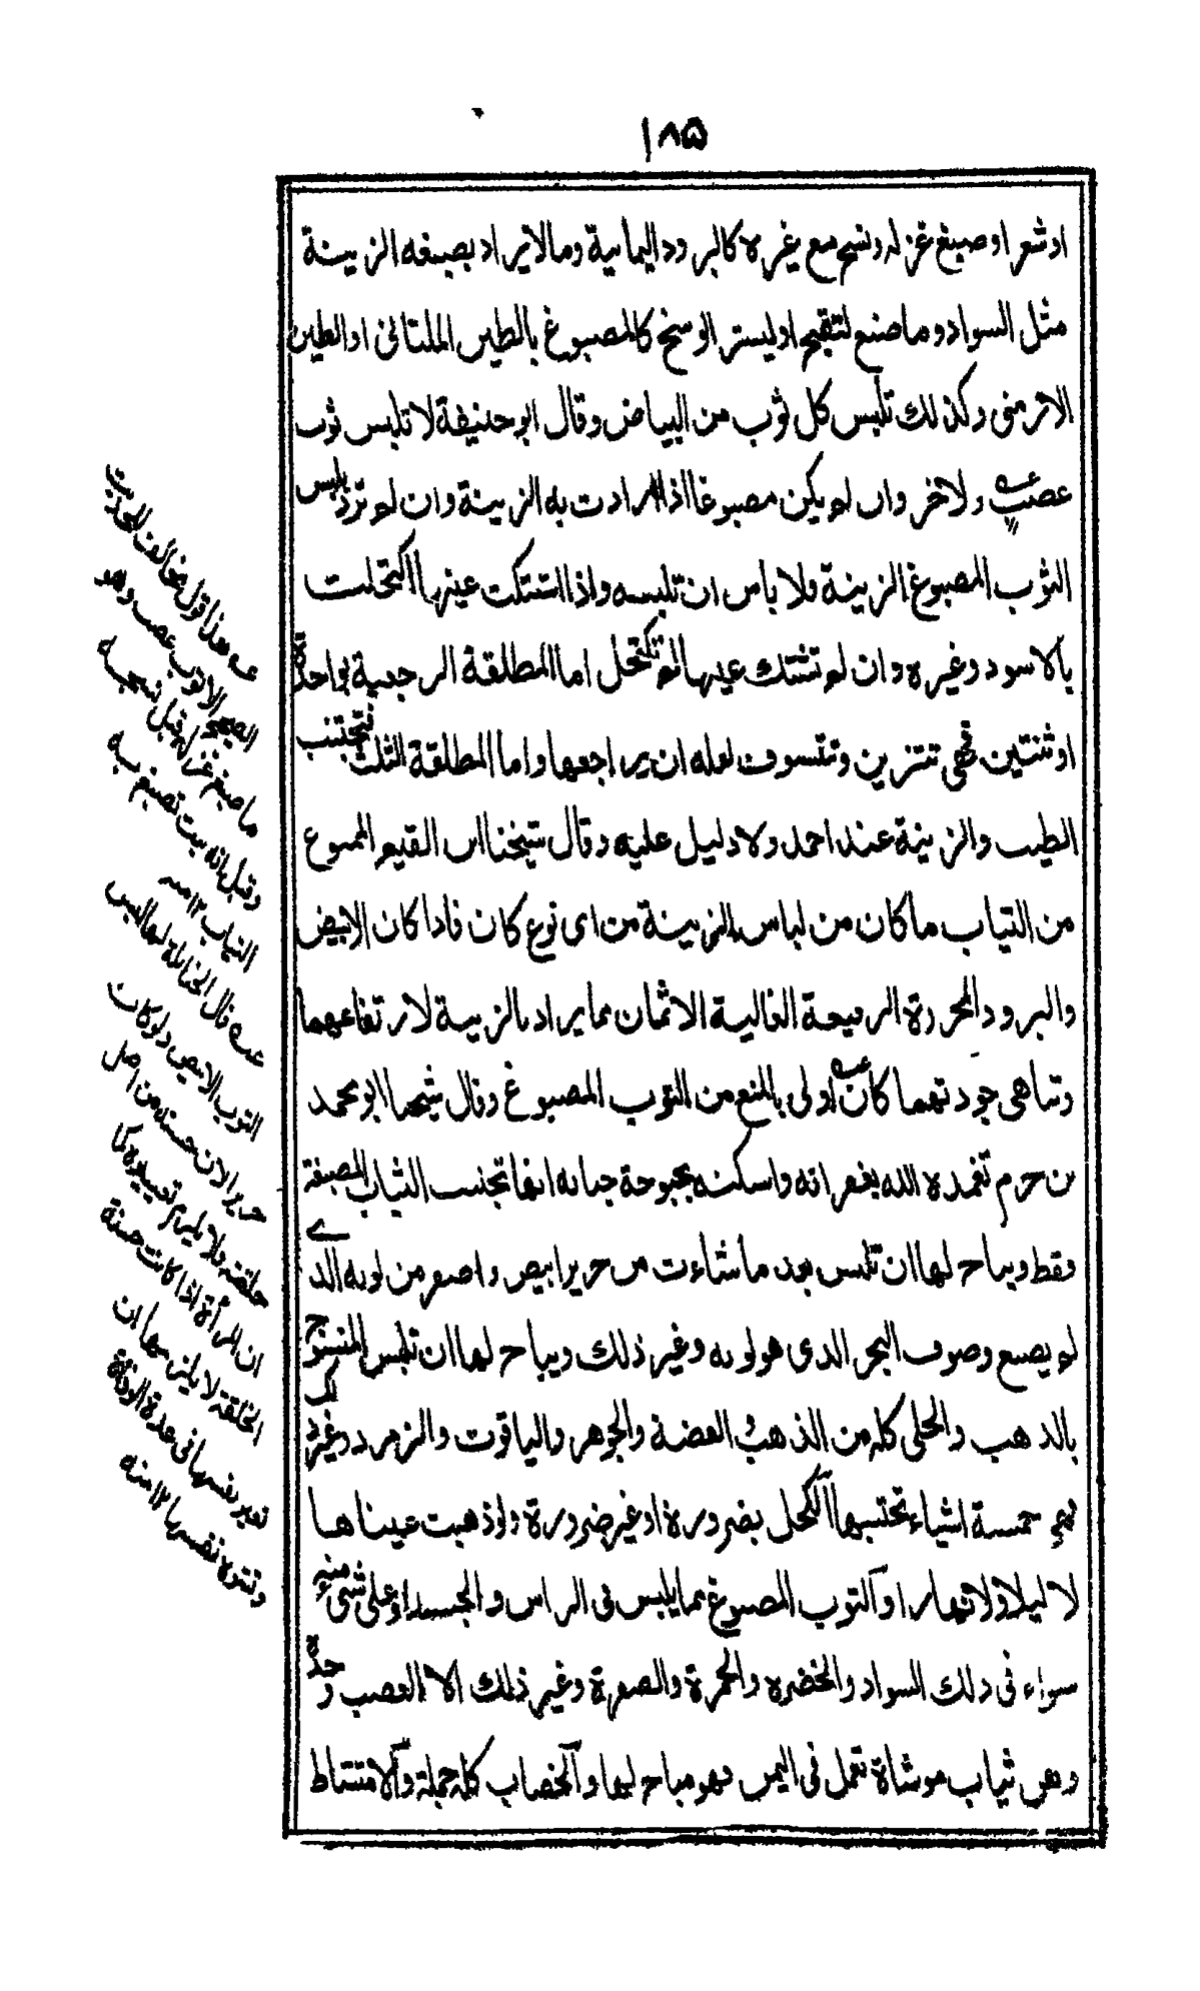 ١٨٥
او شعر او صبغ غزله ونسج مع غيره كالبرود اليمانية ومالا يراد بصبغه الزينة
مثل السواد وما صنع لتقبيح او ليستر الوسخ كالمصبوغ بالطين الملتانى او الطين
الارمنى وكذلك تلبس كل ثوب من البياض وقال ابو حنيفة لا تلبس ثوب
عصب ولا خز وان لم يكن مصبوغا اذا ارادت به الزينة وان لم ترد بلبس
الثوب المصبوغ الزينة فلا باس ان تلبسه واذا اشتكت عينها اكتحلت
بالاسود وغيره وان لم تشتك عينها لم تكتحل اما المطلقة الرجعية بواحدة
او ثنتين فهى تتزين وتتسوف لعله ان يراجعها واما المطلقة الثلث فتجتنب
الطيب والزينة عند احمد ولا دليل عليه وقال شيخنا ابن القيم الممنوع
من الثياب ما كان من لباس الزينة من اى نوع كان فاذا كان الابيض
والبرود المحررة الرفيعة الغالية الاثمان مما يراد بالزينة لارتفاعهما
وتناهى جودتهما كان اولى بالمنع من الثوب المصبوغ وقال شيخنا ابو محمد
بن حزم تغمده الله بغفرانه واسكنه بحبوحة جنانه انها تجتنب الثياب المصبغة
فقط ويباح لها ان تلبس بعد ما شاءت من حرير ابيض واصفر من لونه الذى
لم يصبغ وصوف البحر الذى هو لونه وغير ذلك ويباح لها ان تلبس المنسوج
بالذهب والحلى كله من الذهب والفضة والجوهر والياقوت والزمرد وغير ذلك
فهى خمسة اشياء تجتنبها الكحل بضرورة او غير ضرورة ولو ذهبت عيناها
لا ليلا ولا نهارا والثوب المصبوغ مما يلبس فى الراس والجسد او على شئ منه
سواء فى ذلك السواد والخضرة والحمرة والصفرة وغير ذلك الا العصب وحده
وهى ثياب موشاة تعمل فى اليمن فهو مباح لها والخضاب كله جملة والامتشاط
عه هذا قول مخالف للحديث
الصحيح الا ثوب عصب وهو
ما صبغ غزله قبل نسجه
وقيل انه نبت تصبغ به
الثياب ١٢ منه
عه قال الحنابلة لها لبس
الثوب الابيض ولو كان
حريرا لان حسنه من اصل
خلقته ولا يلزم تغييره كما
ان المرأة اذا كانت حسنة
الخلقة لا يلزمها ان
تغير نفسها فى عدة الوفاة
وتشوه نفسها ١٢ منه